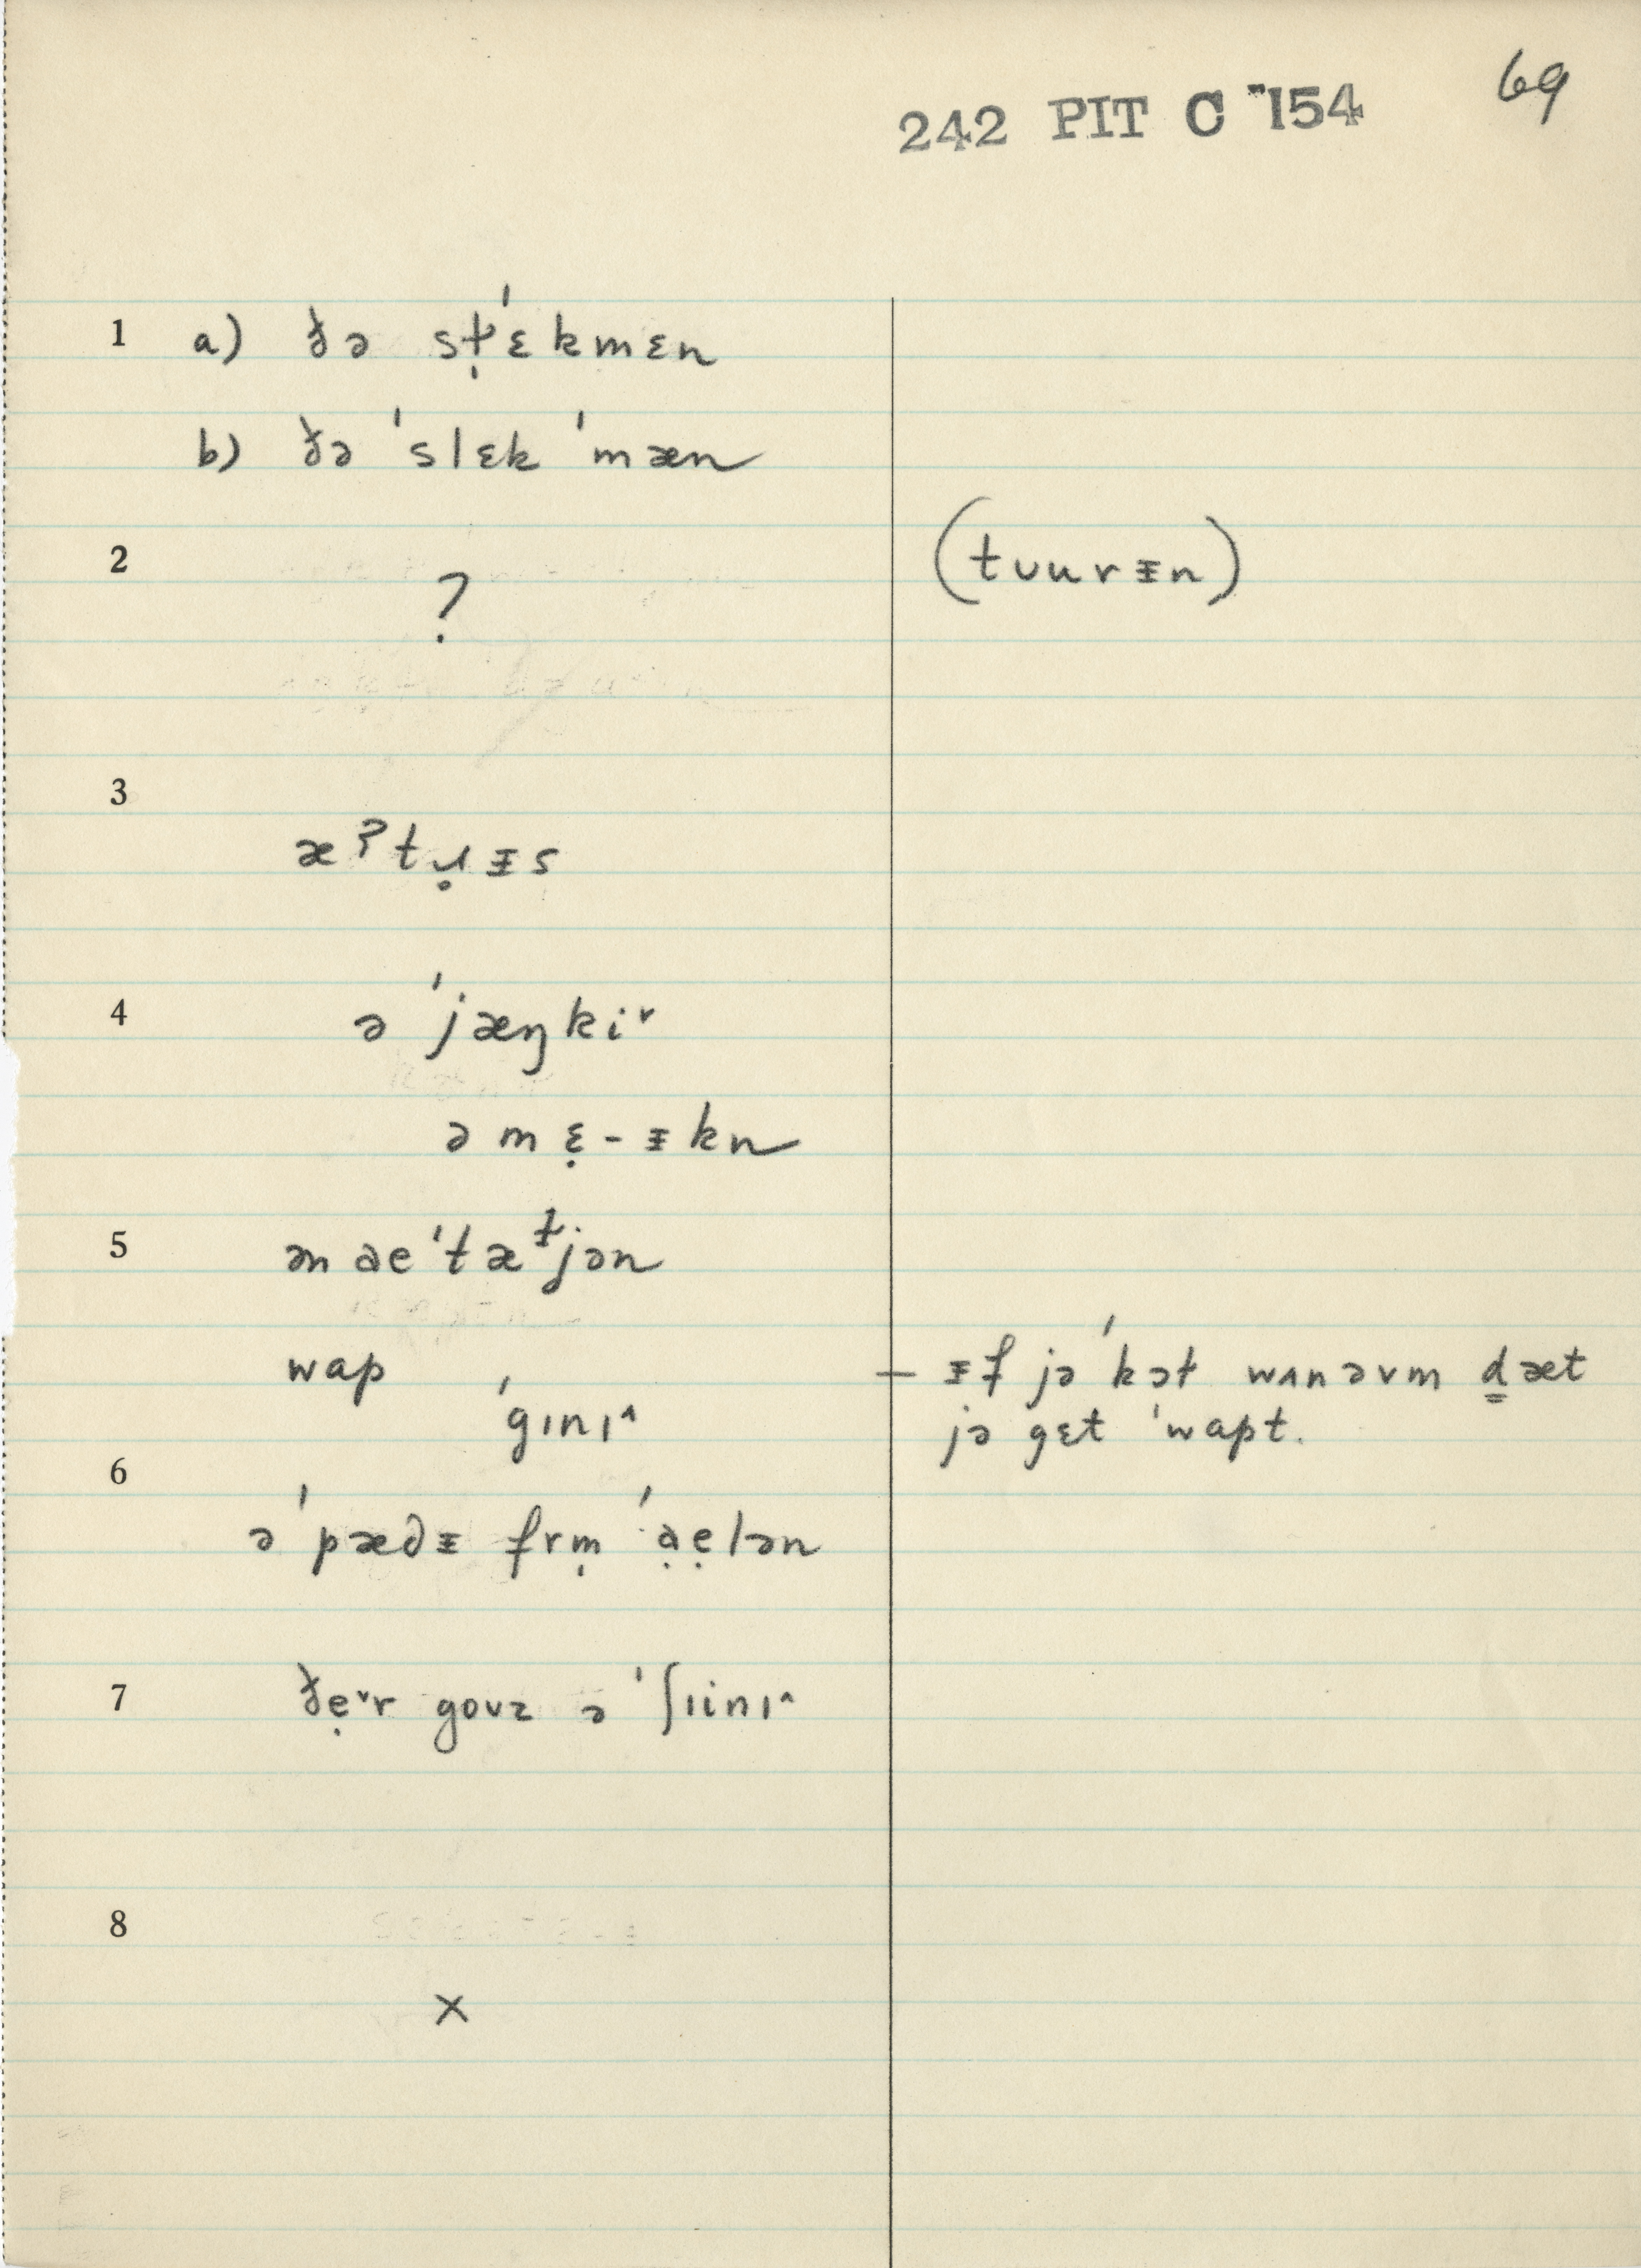 242 PIT C 154 69
1 a) ðə st̩ˈɛkmɛn
b) ðə ˈslɛk ˈmæn
2 (tuurᵻn)
?
3
æʔtɹ̥ᵻs
4 ə ˈjæŋki˅
ə mɛ̣-ᵻkn
5 ən aeˈtæᵗ̵jən
wap – ᵻf jə ˈkɔt wʌnəvm d̳æt
ˈgɪnɪ^ jə gɛt ˈwapt.
6
ə ˈpædᵻ frm̩ ˈạẹlən
7 ðẹ˅r goʊz ə ˈʃɪinɪ^
8
×